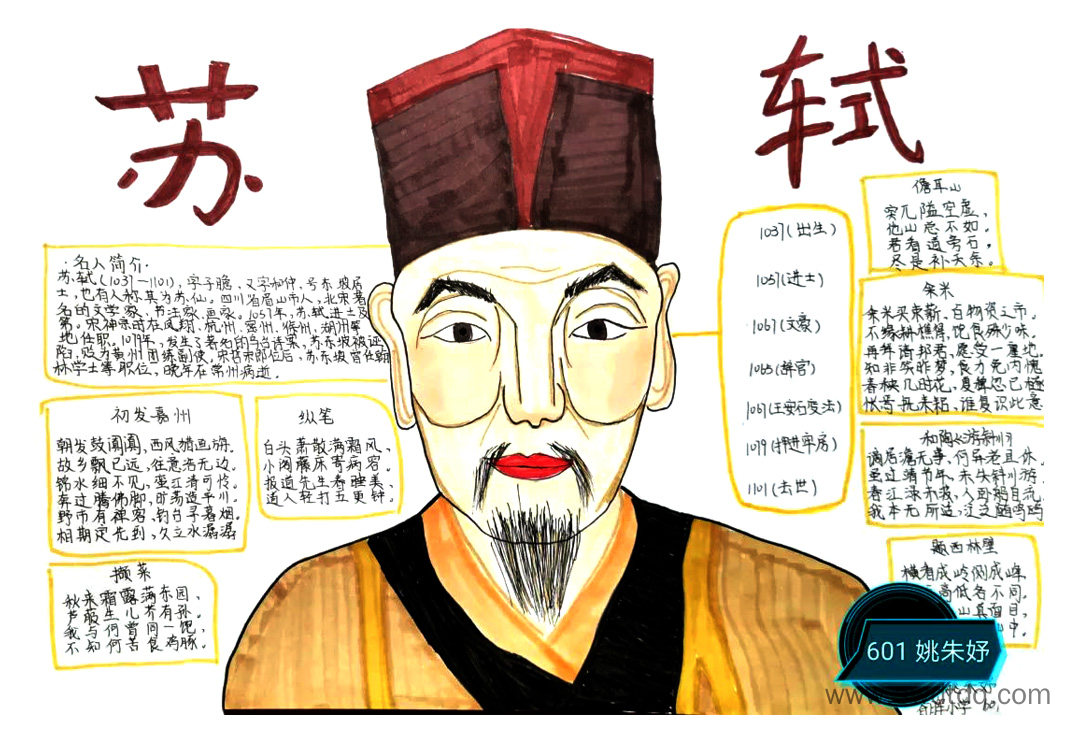 苏
轼
·名人简介·
苏轼(1037—1101),字子瞻,又字和仲,号东坡居
士,也有人称其为苏仙。四川省眉山市人,北宋著
名的文学家、书法家、画家。1057年,苏轼进士及
第。宋神宗时在凤翔、杭州、密州、徐州、湖州等
地任职。1079年,发生了著名的乌台诗案,苏东坡被诬
陷,贬为黄州团练副使。宋哲宗即位后,苏东坡曾任翰
林学士等职位,晚年在常州病逝。
初发嘉州
朝发鼓阗阗,西风猎画旃。
故乡飘已远,往意浩无边。
锦水细不见,蛮江清可怜。
奔过腾佛脚,旷荡造平川。
野市有禅客,钓台寻暮烟。
相期定先到,久立水潺潺。
纵笔
白头萧散满霜风,
小阁藤床寄病容。
报道先生春睡美,
道人轻打五更钟。
撷菜
秋来霜露满东园,
芦菔生儿芥有孙。
我与何曾同一饱,
不知何苦食鸡豚。
1037(出生)
1057(进士)
1067(文豪)
1065(辞官)
1067(王安石变法)
1079(押进牢房)
1101(去世)
儋耳山
突兀隘空虚,
他山总不如。
君看道旁石,
尽是补天余。
籴米
籴米买束薪,百物资之市。
不缘耕樵得,饱食殊少味。
再拜请邦君,愿受一廛地。
知非笑昨梦,食力免内愧
春秧几时花,夏稗忽已穟
怅焉抚耒耜,谁复识此意
和陶《游斜川》
谪居澹无事,何异老且休。
虽过靖节年,未失斜川游。
春江渌未波,人卧船自流。
我本无所适,泛泛随鸣鸥
题西林壁
横看成岭侧成峰,
高低各不同。
山真面目,
山中。
601 姚朱妤